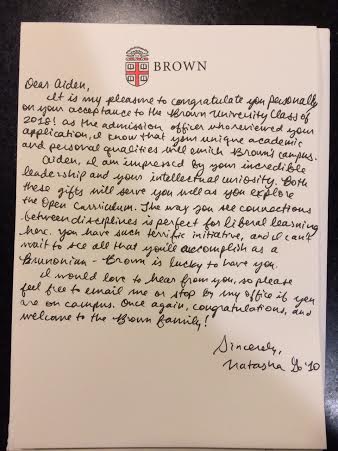 BROWN
Dear Aiden,
It is my pleasure to congratulate you personally
on your acceptance to the Brown University Class of
2018! As the admission officer who reviewed your
application, I know that your unique academic
and personal qualities will enrich Brown's campus.
Aiden, I am impressed by your incredible
leadership and your intellectual curiosity. Both
these gifts will serve you well as you explore
the Open Curriculum. The way you see connections
between disciplines is perfect for liberal learning
here. You have such terrific initiative, and I can't
wait to see all that you'll accomplish as a
Brunonian - Brown is lucky to have you.
I would love to hear from you, so please
feel free to email me or stop by my office if you
are on campus. Once again, congratulations, and
welcome to the Brown family!
Sincerely,
Natasha Go '10